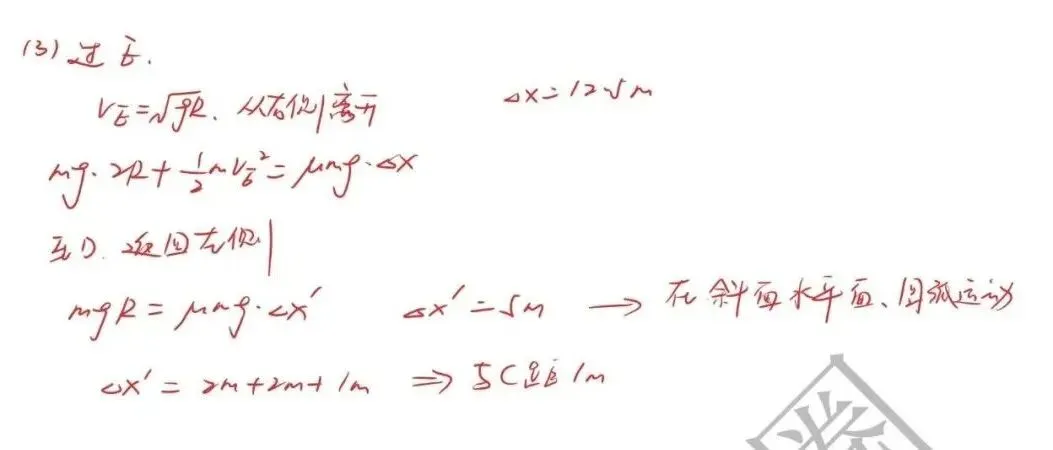 (3) 过 E.
V_E=√gR. 从右侧离开 △X=12.5m
mg·2R+½mV_E²=μmg·△X
至D. 返回左侧
mgR=μmg·△X′ △X′=5m → 在斜面水平面、圆弧运动
△X′=2m+2m+1m ⇒ 与C距1m
卷